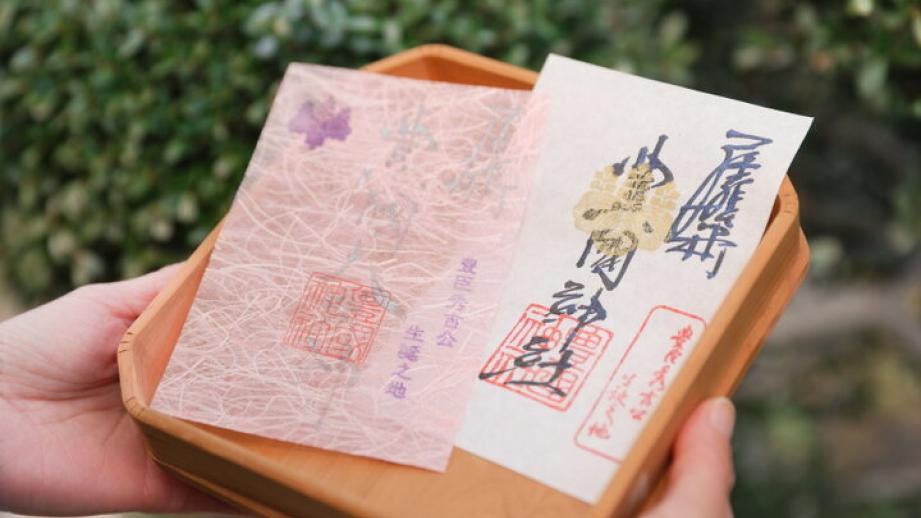 尾張中村
豊國神社
豊臣秀吉公
生誕之地
豊臣秀吉公
生誕之地